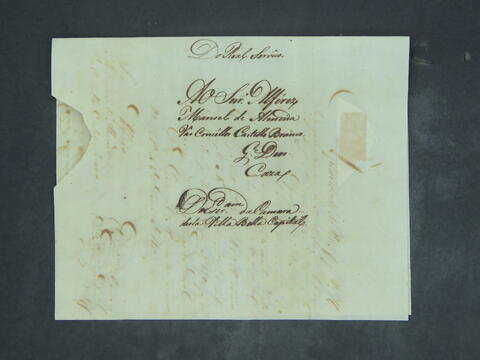 Do Real Serviso
Ao Snr. Alferez
Manoel de Almeida
Vas Concellos Castello Branco
Gde. Deos
Caza
da Camara
desta Villa Bella Capital